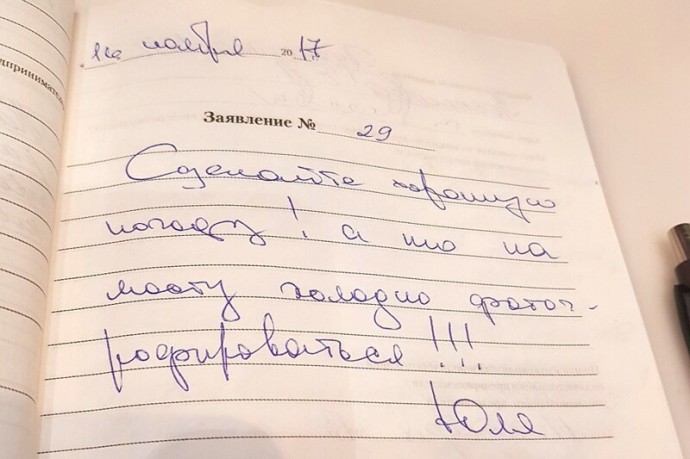 ноября 2017
дпринимател
Заявление № 29
Сделайте хорошую
погоду! а то на
мосту холодно фотог-
рафироваться!!!
Юля